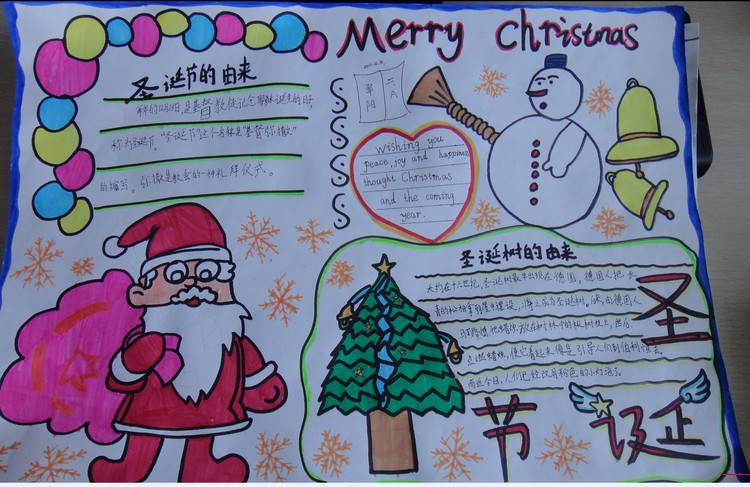 Merry Christmas
圣诞节的由来
每年的12月25日,是基督教徒记念耶稣诞生的日子,
称为圣诞节。“圣诞节”这个名称是“基督弥撒”
的缩写。弥撒是教会的一种礼拜仪式。
wishing you
peace, joy and happiness
thought Christmas
and the coming
year.
圣诞树的由来
大约在十六世纪,圣诞树最早出现在德国,德国人把长
青的松柏拿到屋中摆设,
点燃蜡烛,使它看起来像是引导人们到伯利恒去。
而近今日,人们已经改用粉色的小灯泡了
圣
节 诞